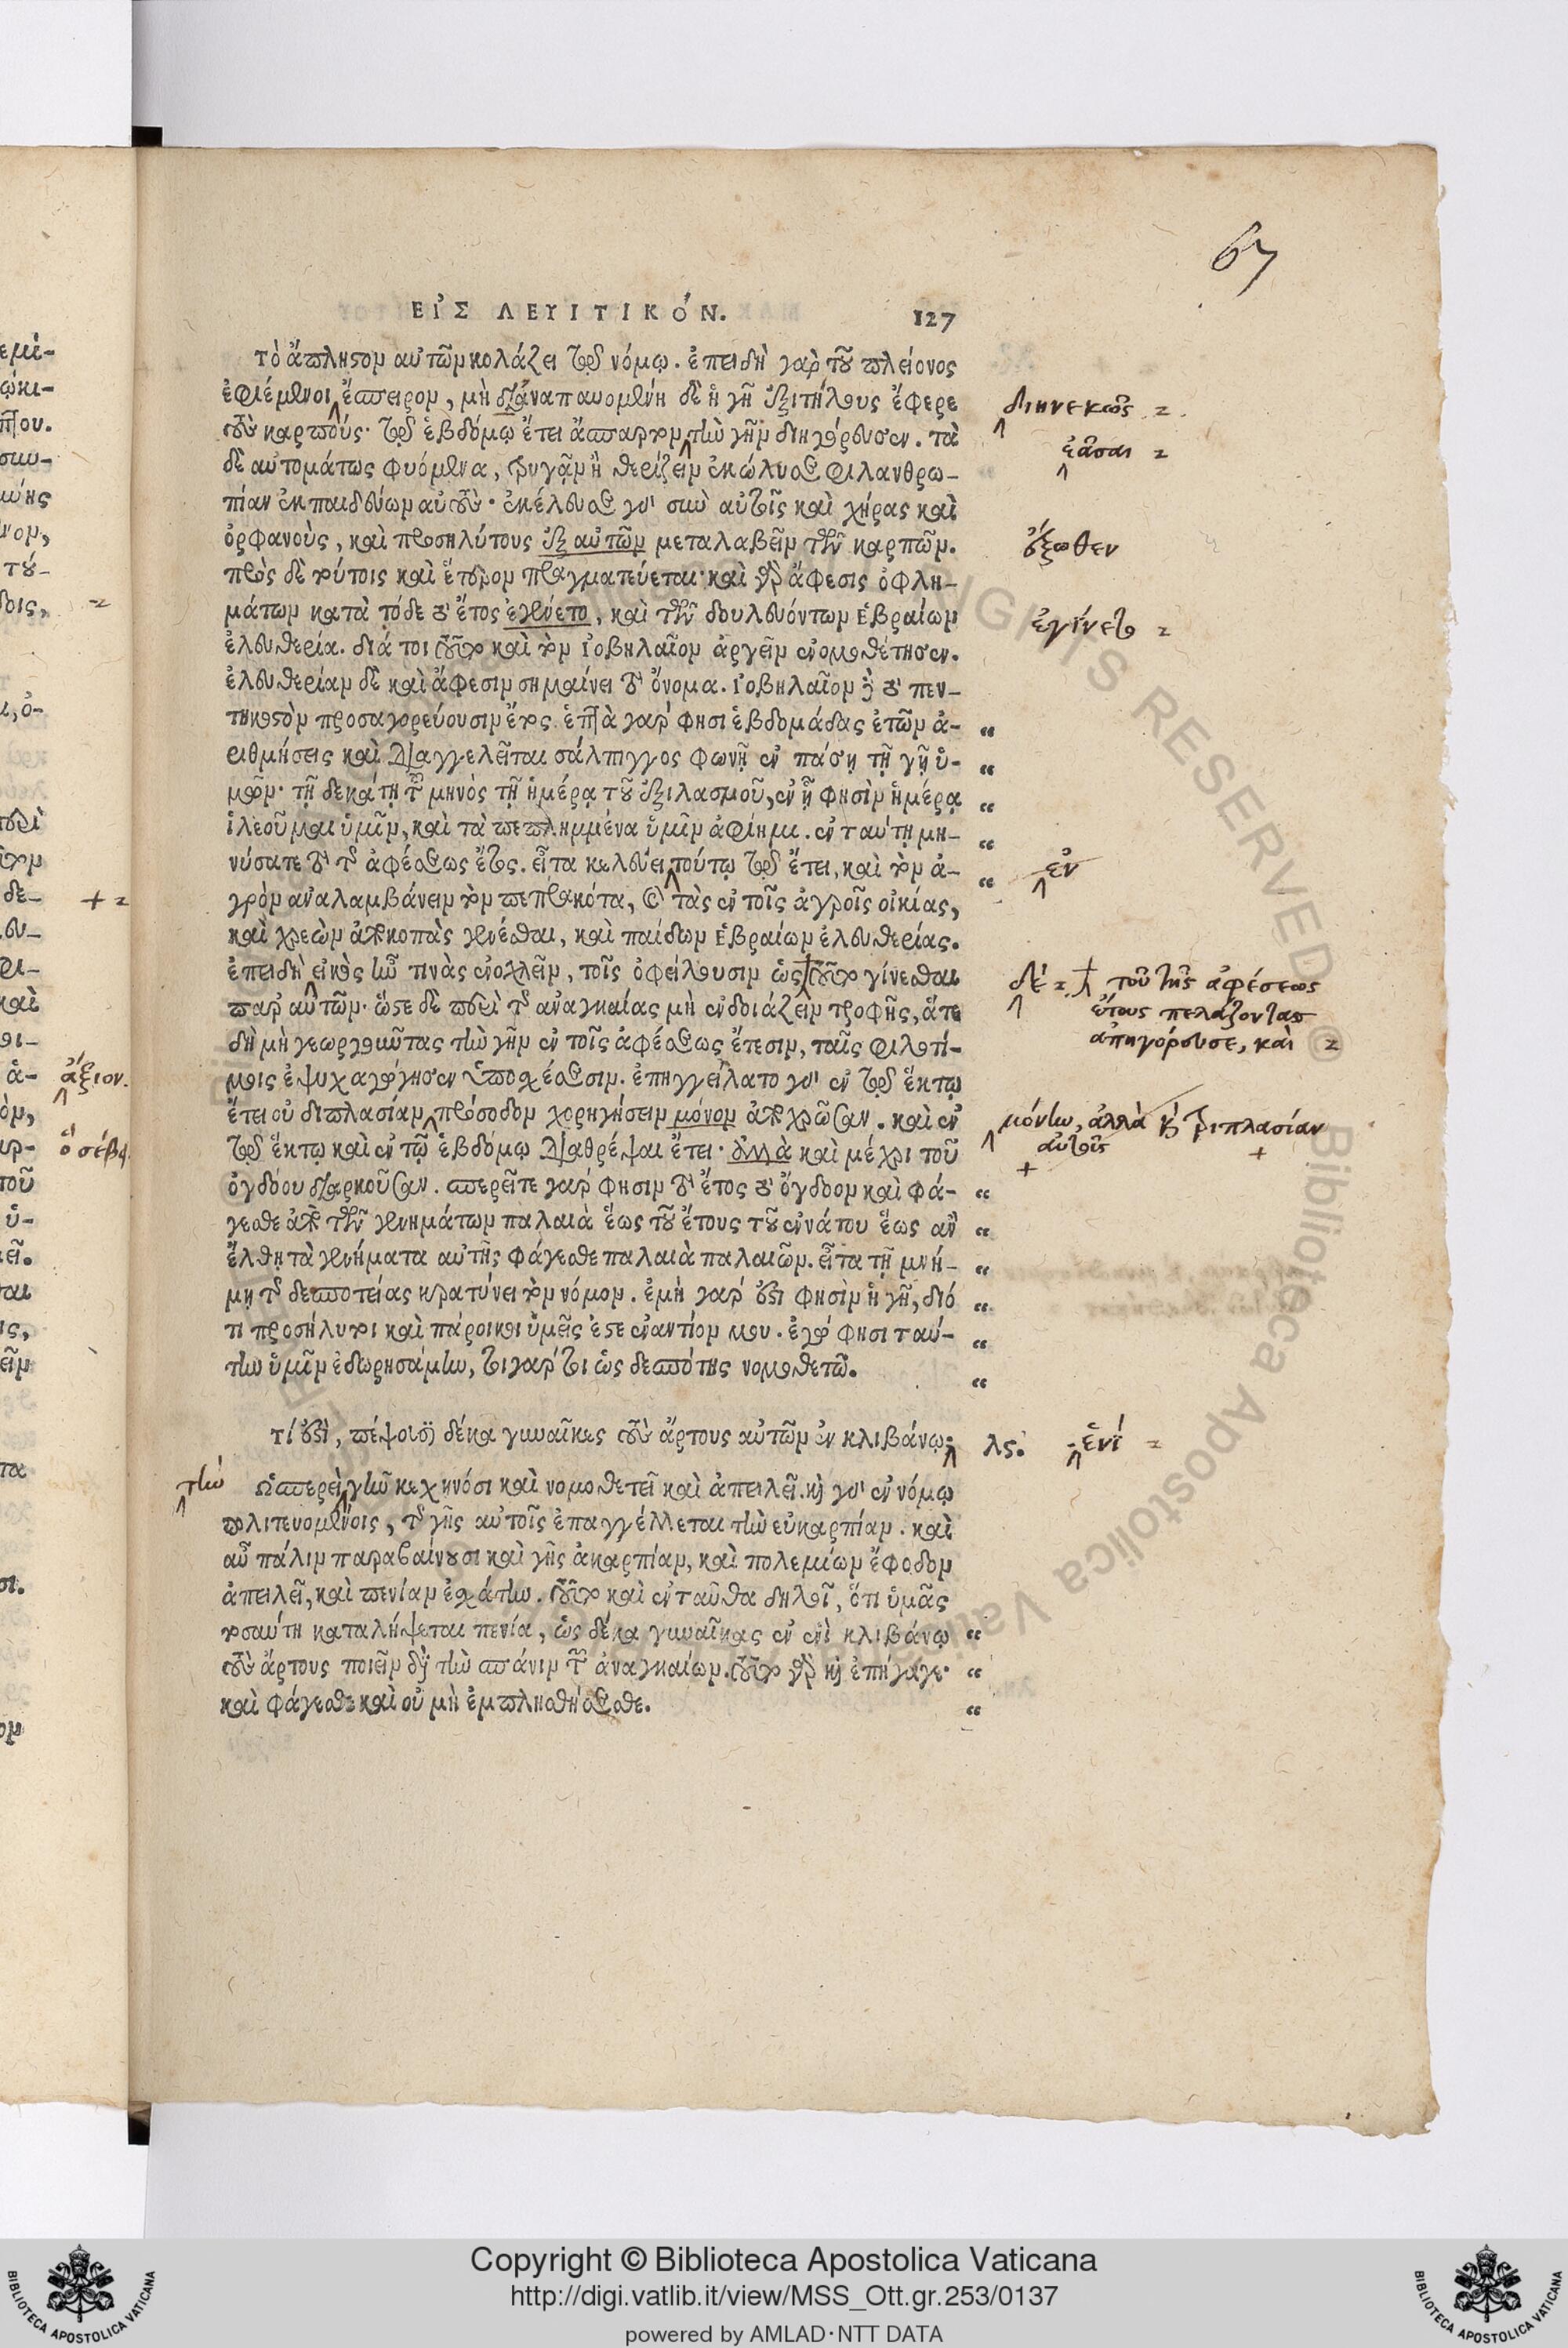 67
ΕΙ᾿Σ ΛΕΥΙΤΙΚΟ´Ν. 127
τὸ ἄπληστον αὐτῶν κολάζει τῷ νόμῳ. ἐπειδὴ γὰρ τοῦ πλείονος
ἐφιέμενοι ἔσπειρον, μὴ διαναπαυομένη δὲ ἡ γῆ ἐξιτήλους ἔφερε
τοὺς καρπούς· τῷ ἑβδόμῳ ἔτει ἄσπαρτον τὴν γῆν διηγόρευσεν. τὰ
δὲ αὐτομάτως φυόμενα, τρυγᾶν ἢ θερίζειν ἐκώλυσε φιλανθρω-
πίαν ἐκπαιδεύων αὐτούς· ἐκέλευσε γὰρ σὺν αὐτοῖς καὶ χήρας καὶ
ὀρφανοὺς, καὶ προσηλύτους ἐξ αὐτῶν μεταλαβεῖν τῶν καρπῶν.
πρὸς δὲ τούτοις καὶ ἕτερον πραγματεύεται· καὶ γὰρ ἄφεσις ὀφλη-
μάτων κατὰ τόδε τὸ ἔτος ἐγένετο, καὶ τῶν δουλευόντων Ἑβραίων
ἐλευθερία. διά τοι τοῦτο καὶ τὸν Ἰοβηλαῖον ἀργεῖν ἐνομοθέτησεν.
ἐλευθερίαν δὲ καὶ ἄφεσιν σημαίνει τὸ ὄνομα. Ἰοβηλαῖον δὲ τὸ πεν-
τηκοστὸν προσαγορεύουσιν ἔτος. ἑπτὰ γάρ φησι ἑβδομάδας ἐτῶν ἀ- “
ριθμήσεις καὶ διαγγελεῖται σάλπιγγος φωνῇ ἐν πάσῃ τῇ γῇ ὑ- “
μῶν· τῇ δεκάτῃ τοῦ μηνὸς τῇ ἡμέρᾳ τοῦ ἐξιλασμοῦ, ἐν ᾗ φησὶν ἡμέρᾳ “
ἱλεοῦμαι ὑμῖν, καὶ τὰ πεπλημμένα ὑμῖν ἀφίημι. ἐν ταύτῃ μη- “
νύσατε τὸ τῆς ἀφέσεως ἔτος. εἶτα κελεύει τούτῳ τῷ ἔτει, καὶ τὸν ἀ- “
γρὸν ἀναλαμβάνειν τὸν πεπρακότα, καὶ τὰς ἐν τοῖς ἀγροῖς οἰκίας,
καὶ χρεῶν ἀποκοπὰς γενέσθαι, καὶ παίδων Ἑβραίων ἐλευθερίας.
ἐπειδὴ εἰκὸς ἦν τινὰς ἐνοχλεῖν, τοῖς ὀφείλουσιν ὡς τοῦτο γίνεσθαι
παρ αὐτῶν· ὥστε δὲ περὶ τῆς ἀναγκαίας μὴ ἐνδοιάζειν τροφῆς, ἅτε
δὴ μὴ γεωργοῦντας τὴν γῆν ἐν τοῖς ἀφέσεως ἔτεσιν, ταῖς φιλοτί-
μοις ἐψυχαγώγησεν ὑποσχέσεσιν. ἐπηγγείλατο γὰρ ἐν τῷ ἕκτῳ
ἔτει οὐ διπλασίαν πρόσοδον χορηγήσειν μόνον ἀποχρῶσαν. καὶ ἐν
τῷ ἕκτῳ καὶ ἐν τῷ ἑβδόμῳ διαθρέψαι ἔτει· ἀλλὰ καὶ μέχρι τοῦ
ὀγδόου διαρκοῦσαν. σπερεῖτε γάρ φησιν τὸ ἔτος τὸ ὄγδοον καὶ φά- “
γεσθε ἀπὸ τῶν γενημάτων παλαιὰ ἕως τοῦ ἔτους τοῦ ἐνάτου ἕως ἂν “
ἔλθῃ τὰ γενήματα αὐτῆς φάγεσθε παλαιὰ παλαιῶν. εἶτα τῇ μνή- “
μῃ τῆς δεσποτείας κρατύνει τὸν νόμον. ἐμὴ γάρ ἐστι φησὶν ἡ γῆ, διό “
τι προσήλυτοι καὶ πάροικοι ὑμεῖς ἐστε ἐναντίον μου. ἐγώ φησι ταύ- “
την ὑμῖν ἐδωρησάμην, τοιγάρτοι ὡς δεσπότης νομοθετῶ. “
τί ἐστὶ, πέψουσι δέκα γυναῖκες τοὺς ἄρτους αὐτῶν ἐν κλιβάνῳ; λς.
Ὡσπερεὶ γῆν κεχηνόσι καὶ νομοθετεῖ καὶ ἀπειλεῖ. καὶ γὰρ ἐν νόμῳ
πολιτευομένοις, τῆς γῆς αὐτοῖς ἐπαγγέλλεται τὴν εὐκαρπίαν. καὶ
αὖ πάλιν παραβαίνουσι καὶ γῆς ἀκαρπίαν, καὶ πολεμίων ἔφοδον
ἀπειλεῖ, καὶ πενίαν ἐσχάτην. τοῦτο καὶ ἐνταῦθα δηλοῖ, ὅτι ὑμᾶς
τοσαύτη καταλήψεται πενία, ὡς δέκα γυναῖκας ἐν ἑνὶ κλιβάνῳ “
τοὺς ἄρτους ποιεῖν διὰ τὴν σπάνιν τῶν ἀναγκαίων. τοῦτο γὰρ καὶ ἐπήγαγε· “
καὶ φάγεσθε καὶ οὐ μὴ ἐμπλησθήσεσθε. “
διηνεκῶς
ἐᾶσαι
ἔξωθεν
ἐγίνετο
ἐν
δέ τοὺς τῆς ἀφέσεως
ἔτους πελάζοντας
ἀπηγόρευσε, καὶ
μόνην, ἀλλὰ καὶ τριπλασίαν
αὐτοῖς
ἑνί
τὴν
ἄξιον.
Copyright © Biblioteca Apostolica Vaticana
http://digi.vatlib.it/view/MSS_Ott.gr.253/0137
powered by AMLAD·NTT DATA
BIBLIOTECA APOSTOLICA VATICANA
BIBLIOTECA APOSTOLICA VATICANA